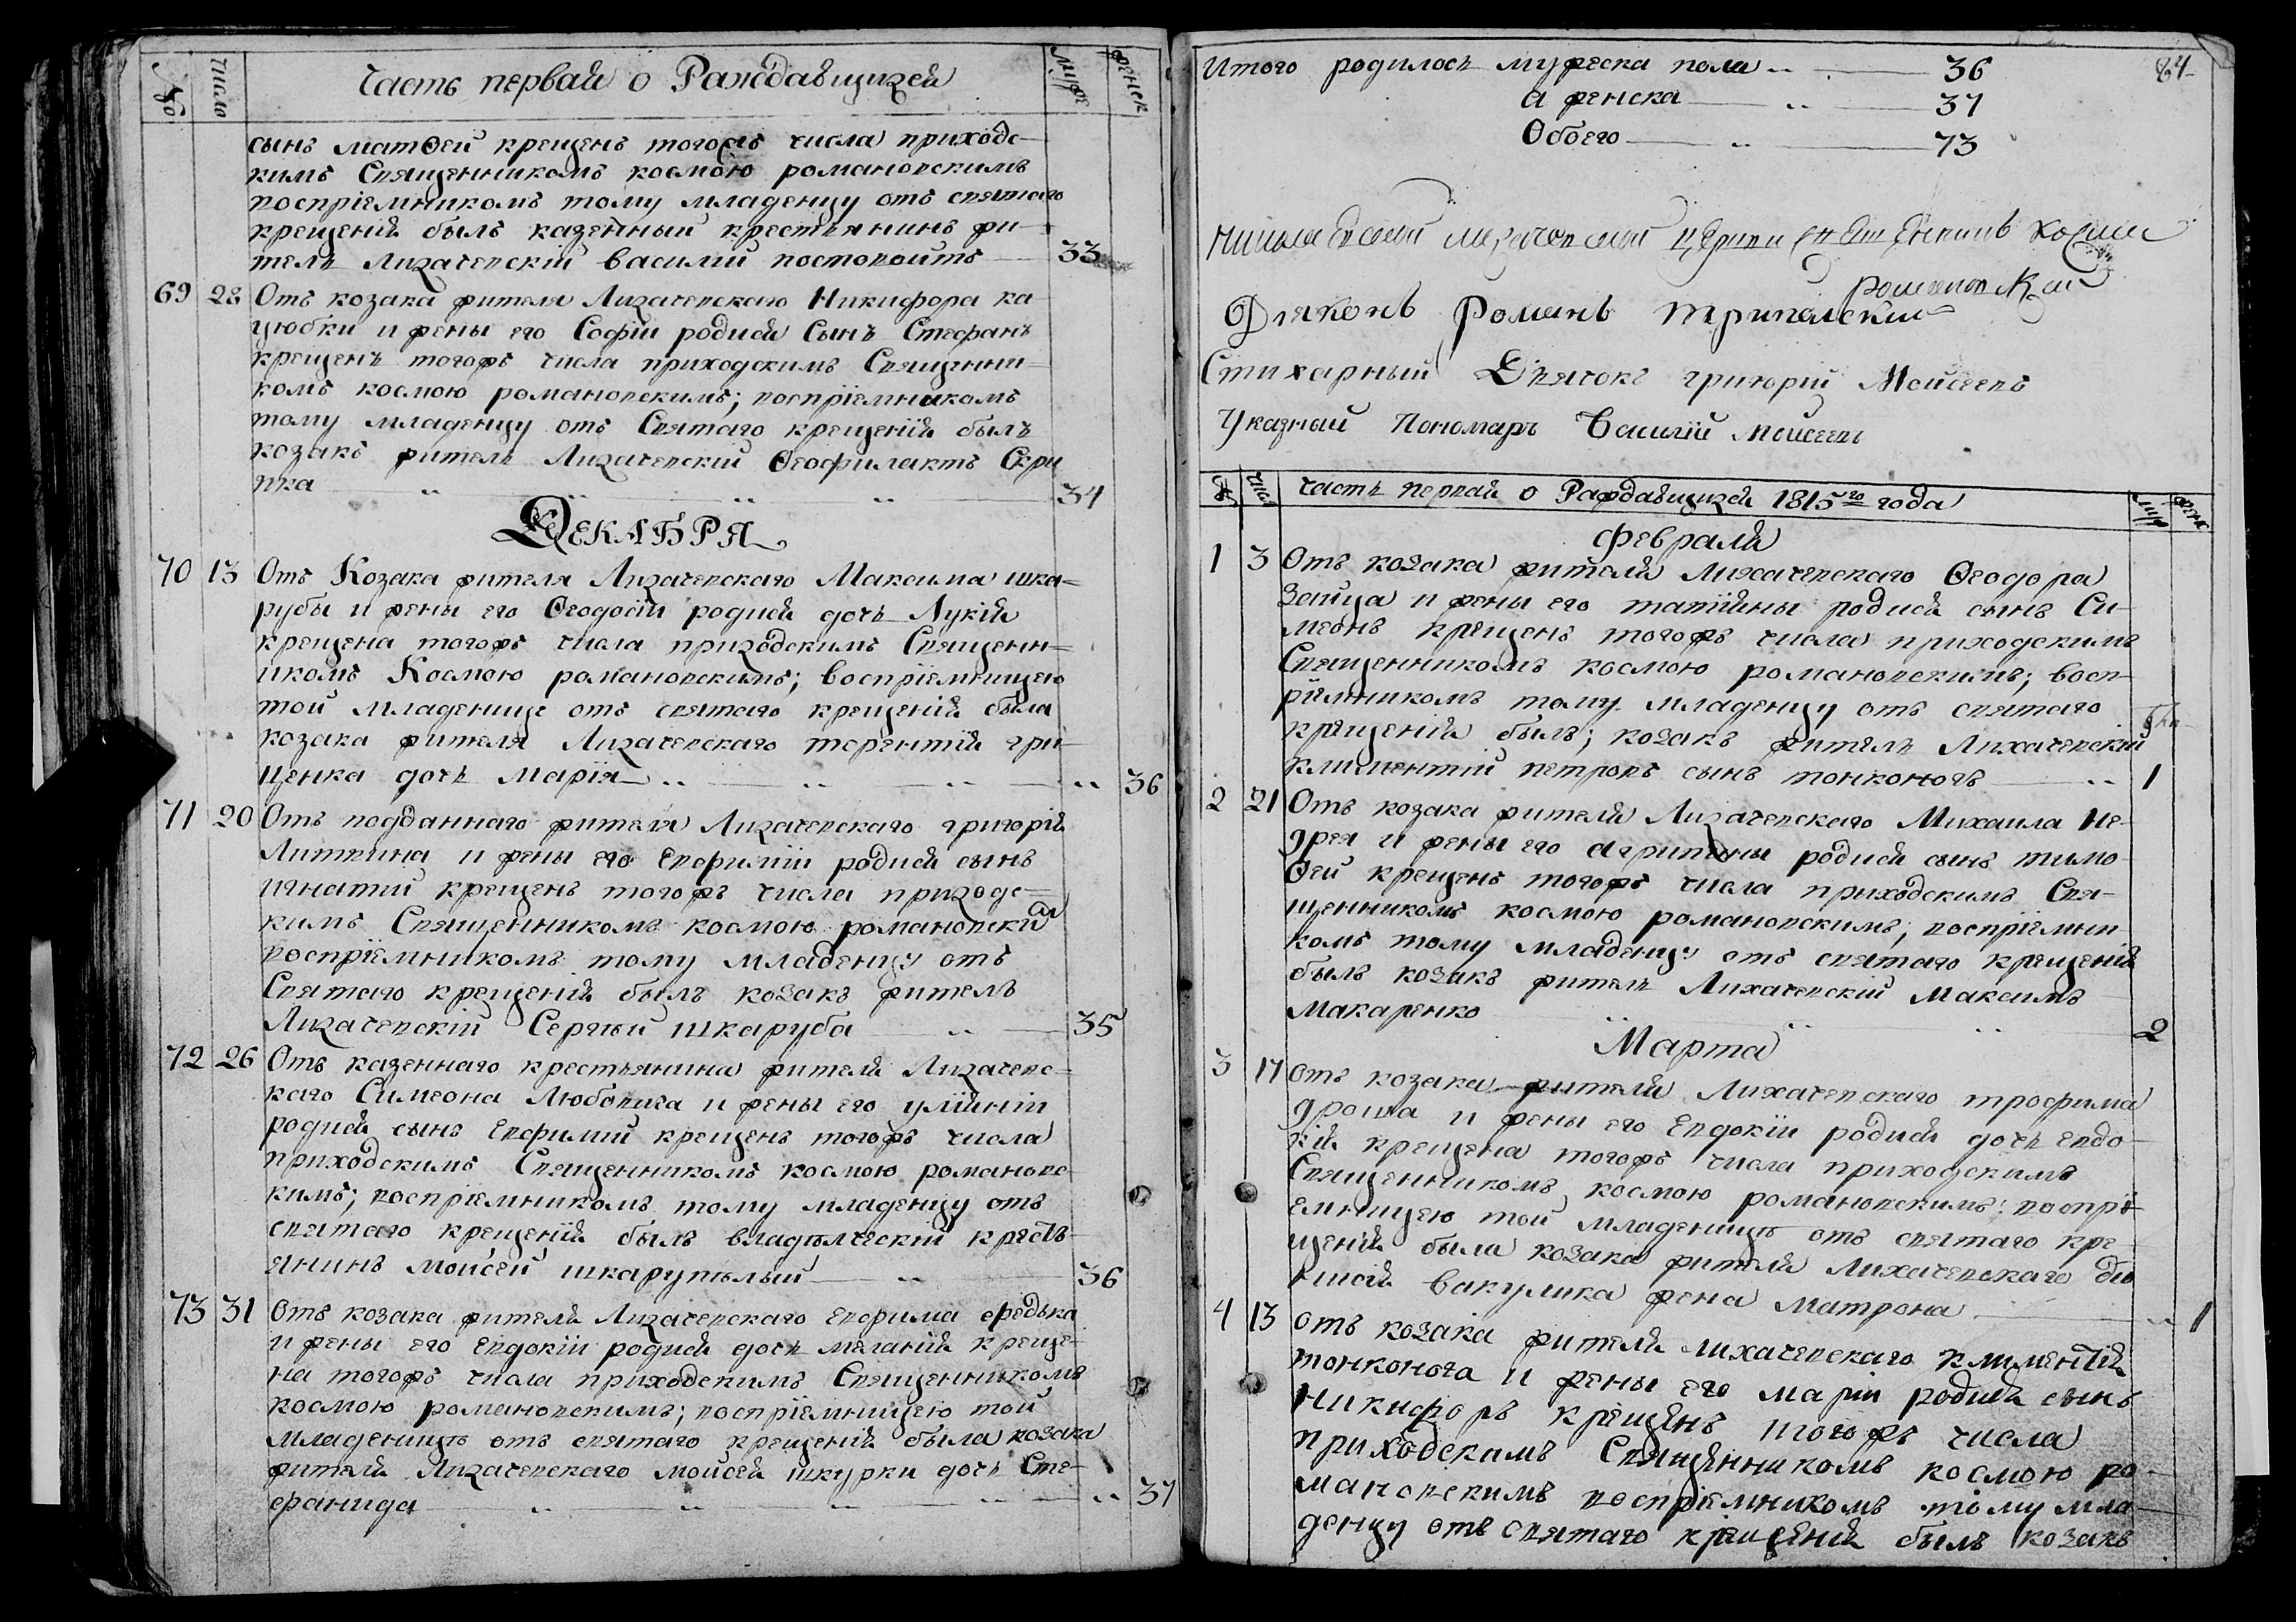 № Числа Часть первая о Раждавщихся муж женск
сынъ матѳей крещенъ тогожъ числа приходс-
кимъ Священникомъ космою романовскимъ
воспріемникомъ тому младенцу отъ святаго
крещенія былъ казенный крестьянинъ жи-
тель Лихачевскій василий 33
69 22 Отъ козака жителя Лихачевскаго Никифора ка
цюбки и жены его Софіи родися Сынъ Стефанъ
крещенъ тогожъ числа приходскимъ Священни-
комъ космою романовскимъ; воспріемникомъ
тому младенцу отъ Святаго крещенія былъ
козакъ житель Лихачевскій Ѳеофилактъ Скри
пка 34
ДЕКАБРЯ
70 13 Отъ Козака жителя Лихачевскаго Максима шка-
рубы и жены его Ѳеодосіи родися дочь Лукія
крещена тогожъ числа приходскимъ Священн-
икомъ Космою романовскимъ; воспріемницею
той младенице отъ святаго крещенія была
козака жителя Лихачевскаго терентія гри-
ценка дочь Марія 36
71 20 Отъ подданнаго жителя Лихачевскаго григорія
Литвина и жены его Евфиміи родися сынъ
игнатий крещенъ тогожъ числа приходс-
кимъ Священникомъ космою романовскимъ
воспріемникомъ тому младенцу отъ
Святаго крещенія былъ козакъ житель
Лихачевскій Сергій шкаруба 35
72 26 Отъ казеннаго крестьянина жителя Лихачевс-
каго Симеона Любовица и жены его уліяніи
родися сынъ Евфимий крещенъ тогожъ числа
приходскимъ Священникомъ космою романовс-
кимъ; воспріемникомъ тому младенцу отъ
святаго крещенія былъ владѣлческій кресть-
янинъ моисей шкарупѣлый 36
73 31 Отъ козака жителя Лихачевскаго Евфима федька
и жены его Евдокіи родися дочь меланія креще-
на тогожъ числа приходскимъ Священникомъ
космою романовскимъ; воспріемницею той
младеницѣ отъ святаго крещенія была козака
жителя Лихачевскаго моисея шкурки дочь Сте-
фанида 37
Итого родилось мужеска пола 36 64
а женска 37
Обоего 73
Лихачевской церкви священникъ Косма
романовский
Діяконъ Романъ трипольский
Стихарный Дьячокъ григорий Моисеевъ
Указный Пономарь Василій моисеевъ
№ Числ Часть первая о Раждавщихся 1815го года муж женс
Февраля
1 3 Отъ козака жителя Лихачевскаго Ѳеодора
Зайца и жены его татіяны родися сынъ Си-
меонъ крещенъ тогожъ числа приходскимъ
Священникомъ космою романовскимъ; восп-
ріемникомъ тому младенцу отъ святаго
крещенія былъ; козакъ житель Лихачевскій
климентий петровъ сынъ тонконогъ 1
2 21 Отъ козака жителя Лихачевскаго Михаила Не-
дрея и жены его агрипины родися сынъ тимо
ѳей крещенъ тогожъ числа приходскимъ Свя-
щенникомъ космою романовскимъ; воспріемни
комъ тому младенцу отъ святаго крещенія
былъ козакъ житель Лихачевский Максимъ
Макаренко 2
Марта
3 17 Отъ козака жителя Лихачевскаго трофима
дроша и жены его Евдокіи родися дочь евдо-
кія крещена тогожъ числа приходскимъ
Священникомъ космою романовскимъ: воспрі-
емницею той младеницѣ отъ святаго кре-
щенія была козака жителя Лихачевскаго діо
нисія вакулика жена матрона 1
4 13 отъ козака жителя лихачевскаго климентія
тонконога и жены его маріи родися сынъ
никифоръ крещенъ тогожъ числа
приходскимъ Священникомъ космою ро-
мановскимъ воспріемникомъ тому мла-
денцу отъ святаго крещенія былъ козакъ